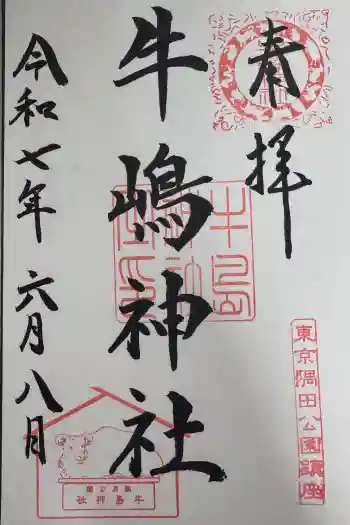 奉拝
東京隅田公園鎮座
牛嶋神社
牛島神社
令和七年 六月八日